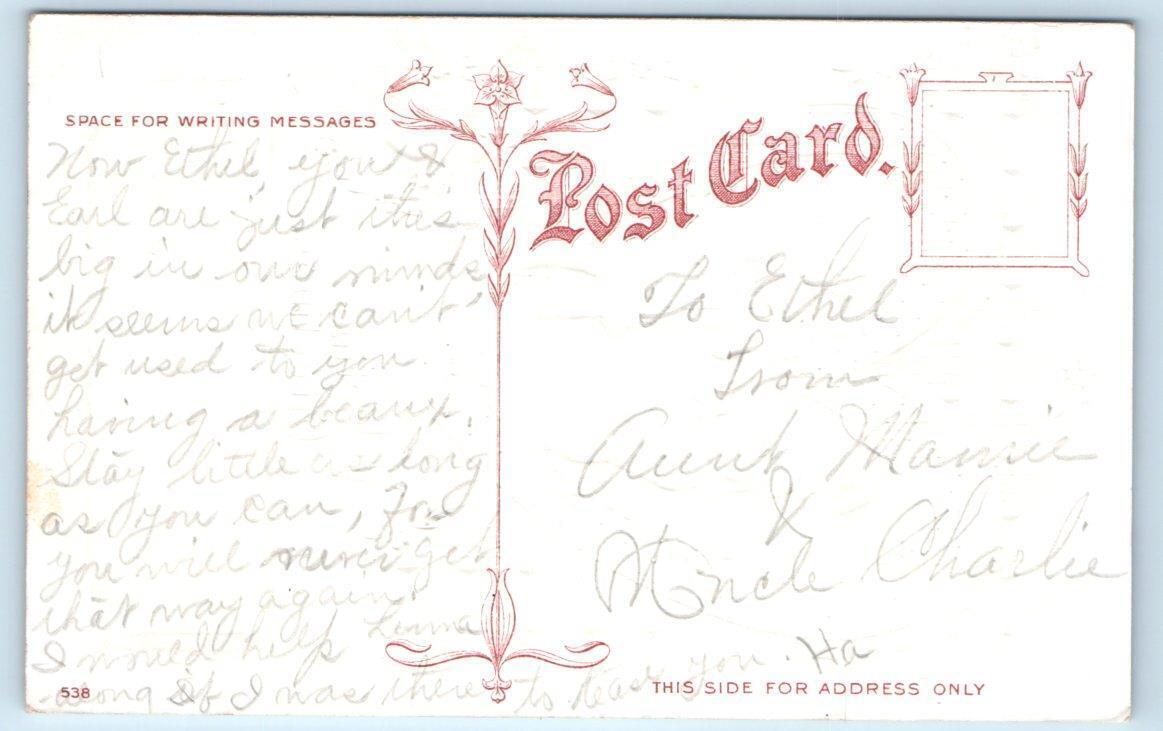 SPACE FOR WRITING MESSAGES
Now Ethel, you &
Earl are just
big in our minds
it seems we can't
get used to you
having a beaux.
Stay little as long
as you can, For
you will never get
that way again.
I would help Lenna
along if I was there to tease you. Ha
538
Post Card.
To Ethel
From
Aunt Mamie
&
Uncle Charlie
THIS SIDE FOR ADDRESS ONLY